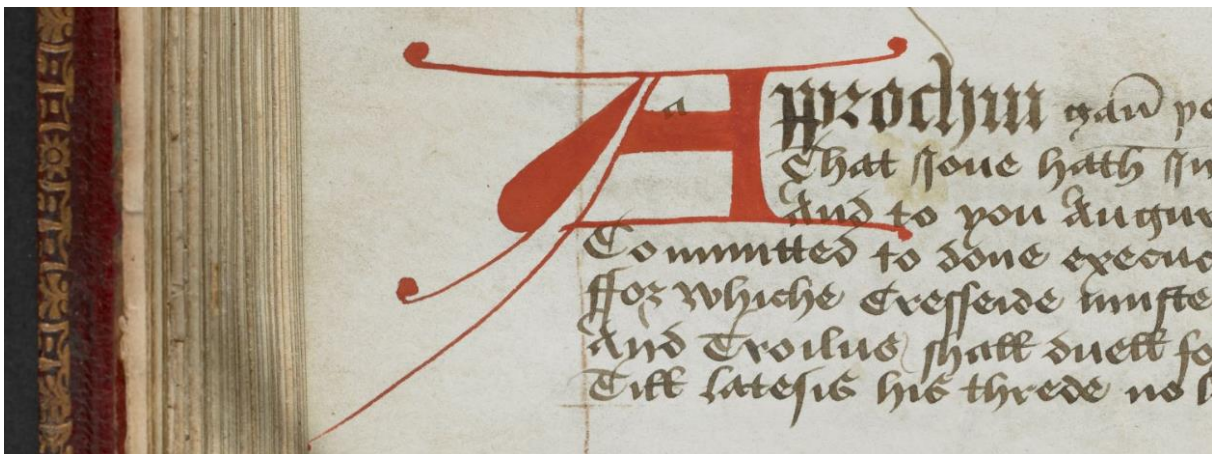 Approchin gan ye
That Joue hath in
And to you Angur
Committed to done execuc
ffor whiche Cresseide muste
And Troilus shall duell fo
Till latesis his threde no l